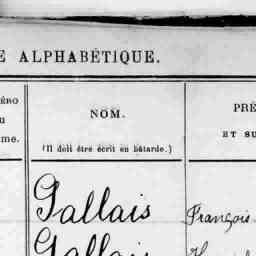 E ALPHABÉTIQUE.
ÉRO
NOM.
PRÉ
u
me.
(Il doit être écrit en bâtarde.)
ET SU
Gallais
François
Gallais